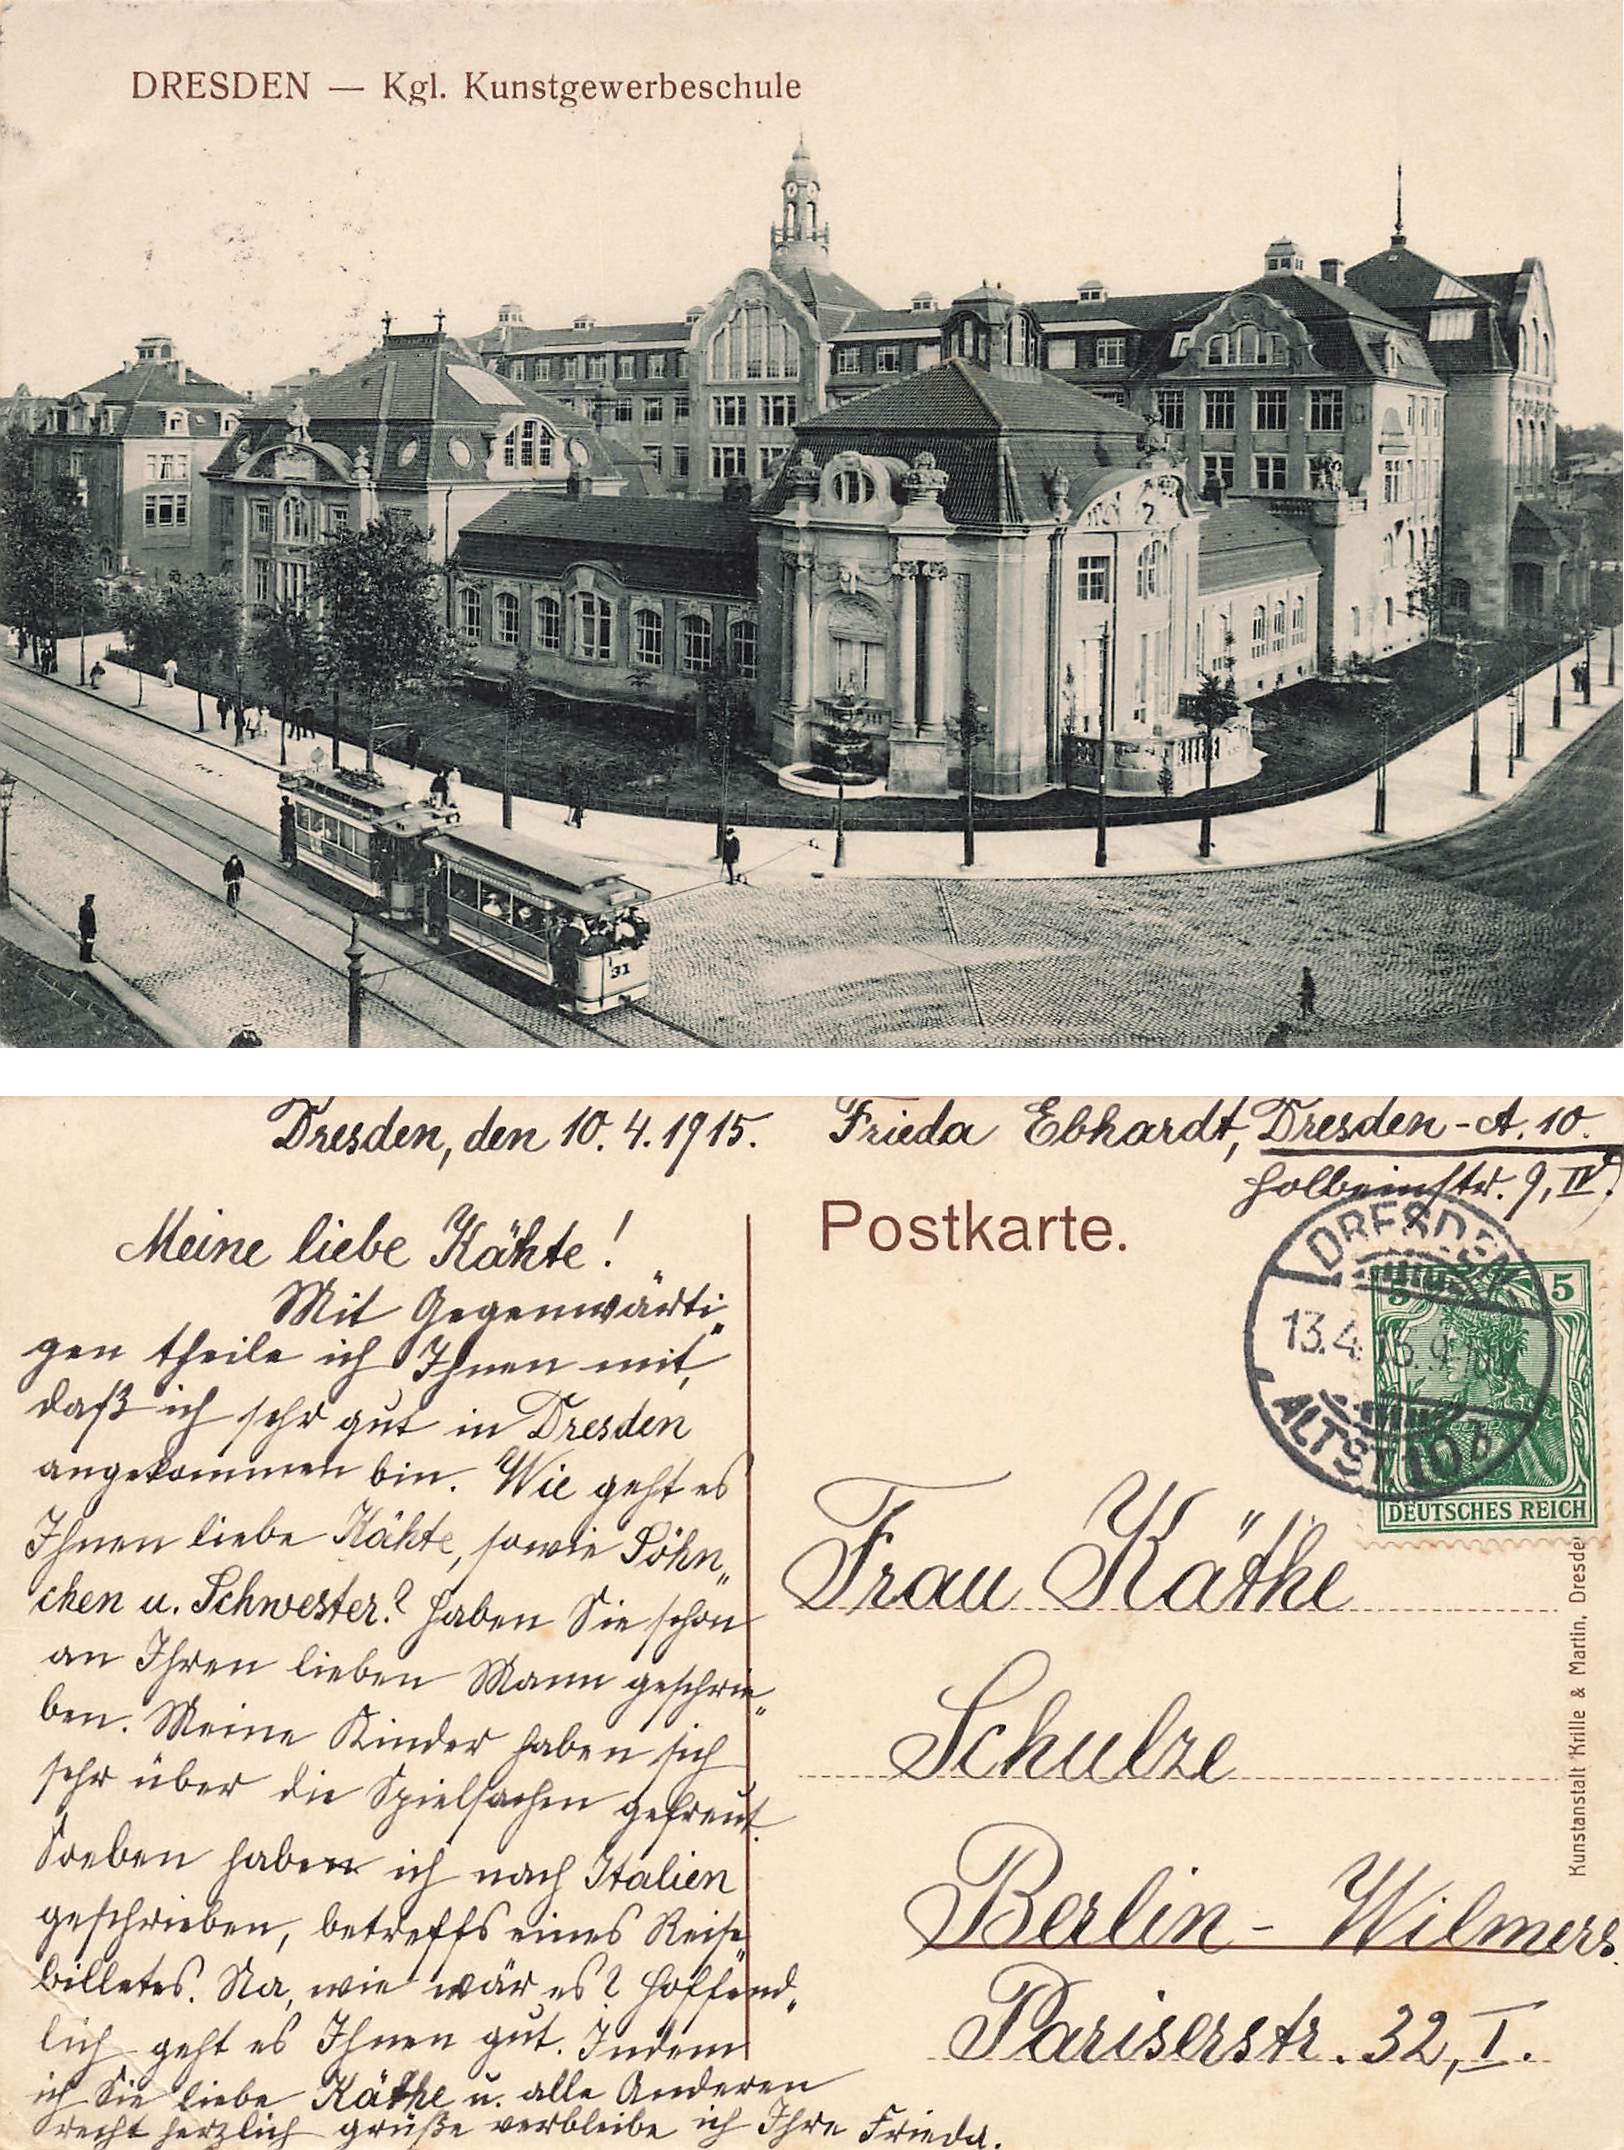 DRESDEN — Kgl. Kunstgewerbeschule
31
Dresden, den 10. 4. 1915.
Frieda Ebhardt, Dresden-A. 10.
Holbeinstr. 9, IV.
Meine liebe Kähte!
Mit Gegenwärti-
gen theile ich Ihnen mit,
daß ich sehr gut in Dresden
angekommen bin. Wie geht es
Ihnen liebe Kähte, sowie Söhn-
chen u. Schwester? Haben Sie schon
an Ihren lieben Mann geschrie-
ben. Meine Kinder haben sich
sehr über die Spielsachen gefreut.
Soeben haben ich nach Italien
geschrieben, betreffs eines Reise-
billetes. Na, wie wär es? Hoffend-
lich geht es Ihnen gut. Indem
ich Sie liebe Käthe u. alle Anderen
recht herzlich grüße verbleibe ich Ihre Frieda.
Postkarte.
DRESDEN
13.4.15. 9
ALTST. 10 b
5
DEUTSCHES REICH
Frau Käthe
Schulze
Berlin - Wilmers.
Pariserstr. 32, I.
Kunstanstalt Krille & Martin, Dresden